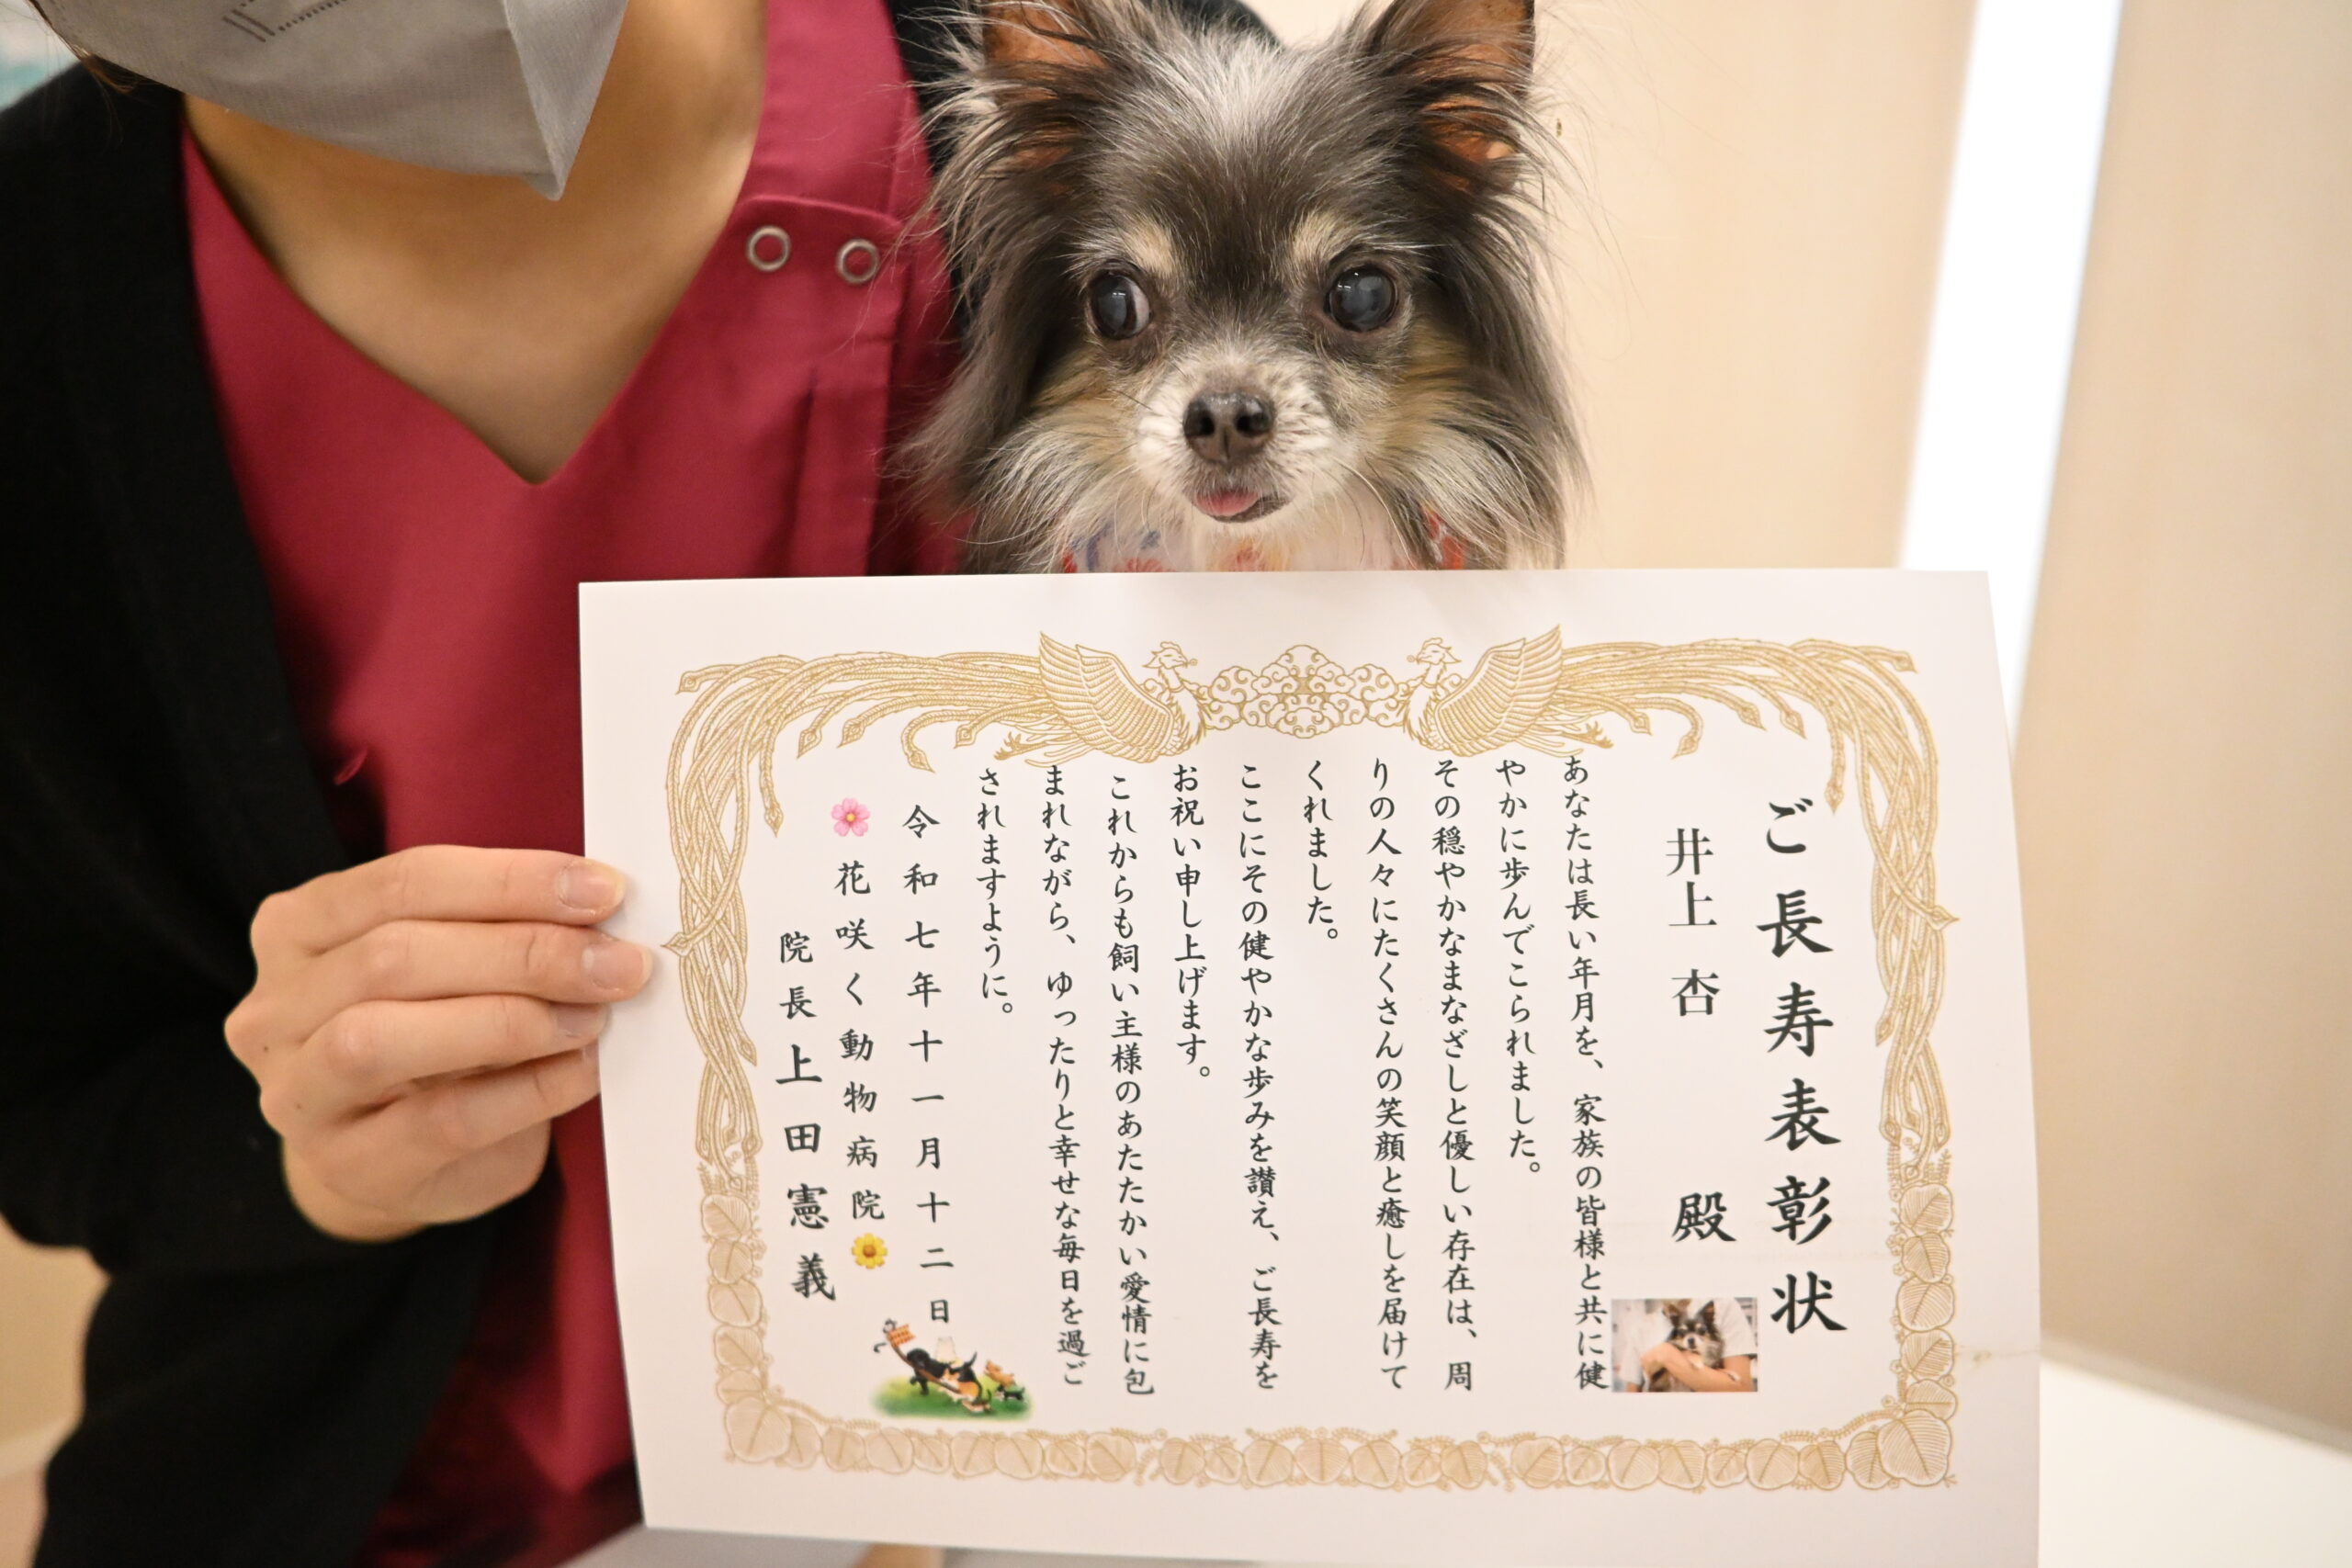 ご長寿表彰状
井上 杏 殿
あなたは長い年月を、家族の皆様と共に健
やかに歩んでこられました。
その穏やかなまなざしと優しい存在は、周
りの人々にたくさんの笑顔と癒しを届けて
くれました。
ここにその健やかな歩みを讃え、ご長寿を
お祝い申し上げます。
これからも飼い主様のあたたかい愛情に包
まれながら、ゆったりと幸せな毎日を過ご
されますように。
令和七年十一月十二日
花咲く動物病院
院長上田憲義